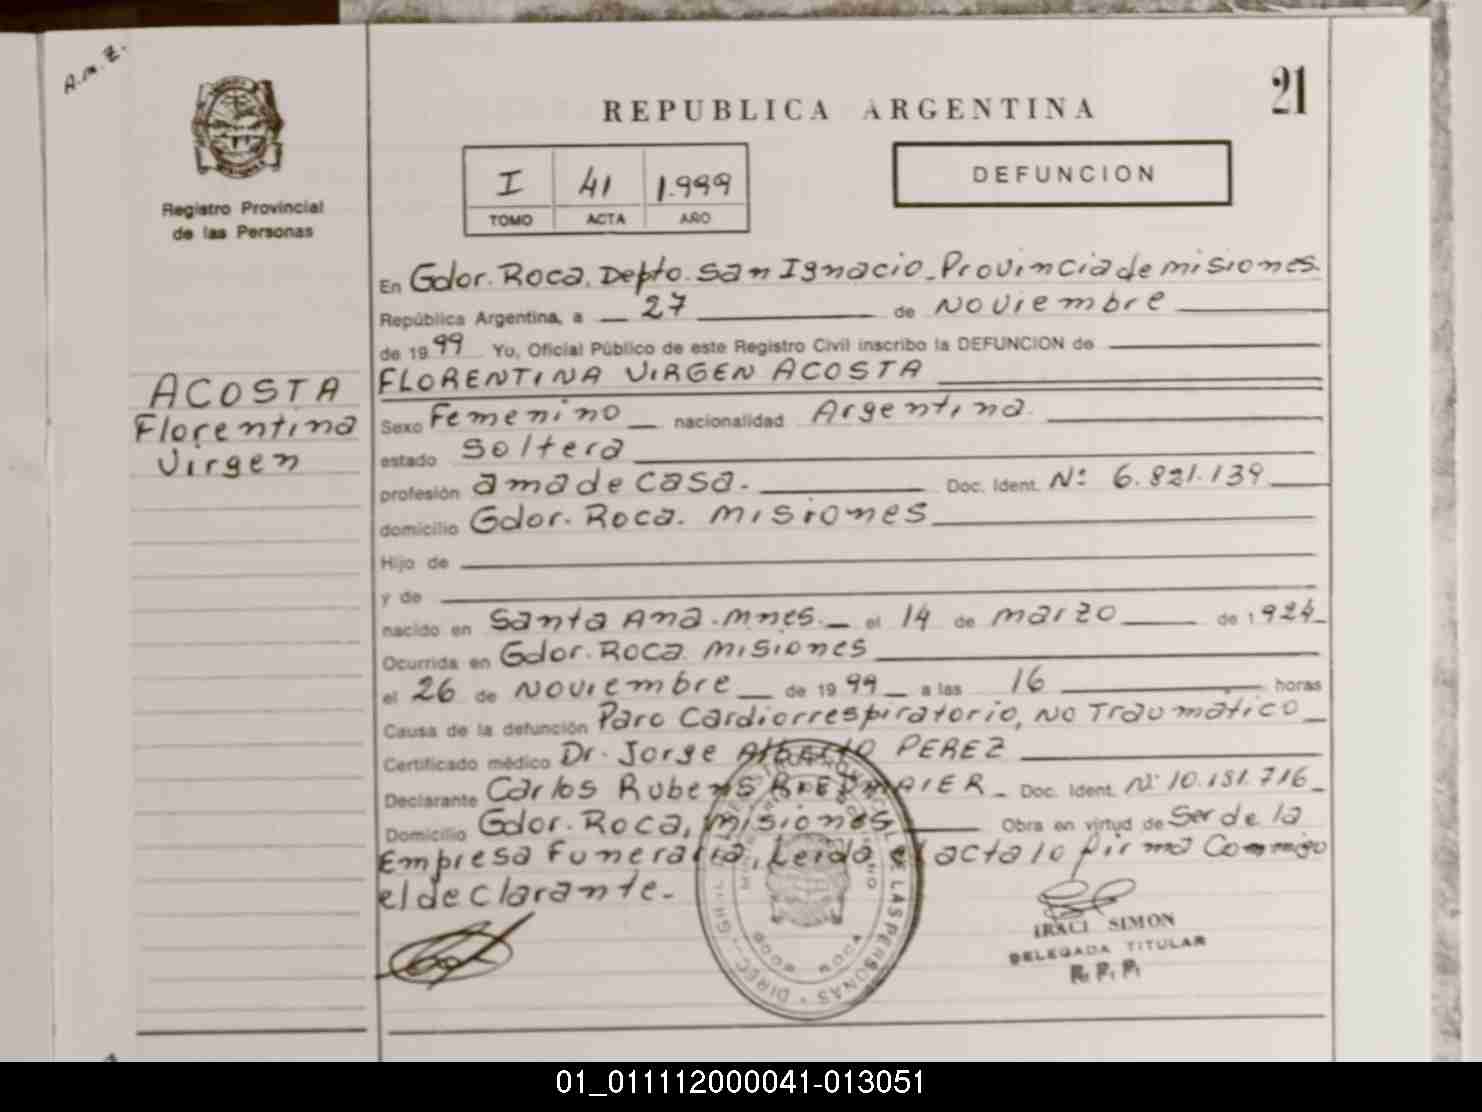 A.M.Z.
21
REPUBLICA ARGENTINA
Registro Provincial
de las Personas
I 41 1.999
TOMO ACTA AÑO
DEFUNCION
ACOSTA
Florentina
Virgen
En Gdor. Roca, Depto. San Ignacio - Provincia de Misiones
República Argentina, a 27 de Noviembre
de 1999 Yo, Oficial Público de este Registro Civil inscribo la DEFUNCION de
FLORENTINA VIRGEN ACOSTA
Sexo Femenino nacionalidad Argentina
estado Soltera
profesión ama de casa. Doc. Ident. Nº 6.821.139
domicilio Gdor. Roca. Misiones
Hijo de
y de
nacido en Santa Ana. Mnes. el 14 de marzo de 1924
Ocurrida en Gdor. Roca Misiones
el 26 de Noviembre de 1999 a las 16 horas
Causa de la defunción Paro Cardiorrespiratorio, No Traumático
Certificado médico Dr. Jorge Alberto PEREZ
Declarante Carlos Rubens Doc. Ident. Nº 10.181.716
Domicilio Gdor. Roca, Misiones Obra en virtud de Ser de la
Empresa Funeraria, Leida el acta lo firma Conmigo
el declarante.
IRACI SIMON
DELEGADA TITULAR
R. P. P.
DE LAS PERSONAS
GDOR ROCA
01_011112000041-013051